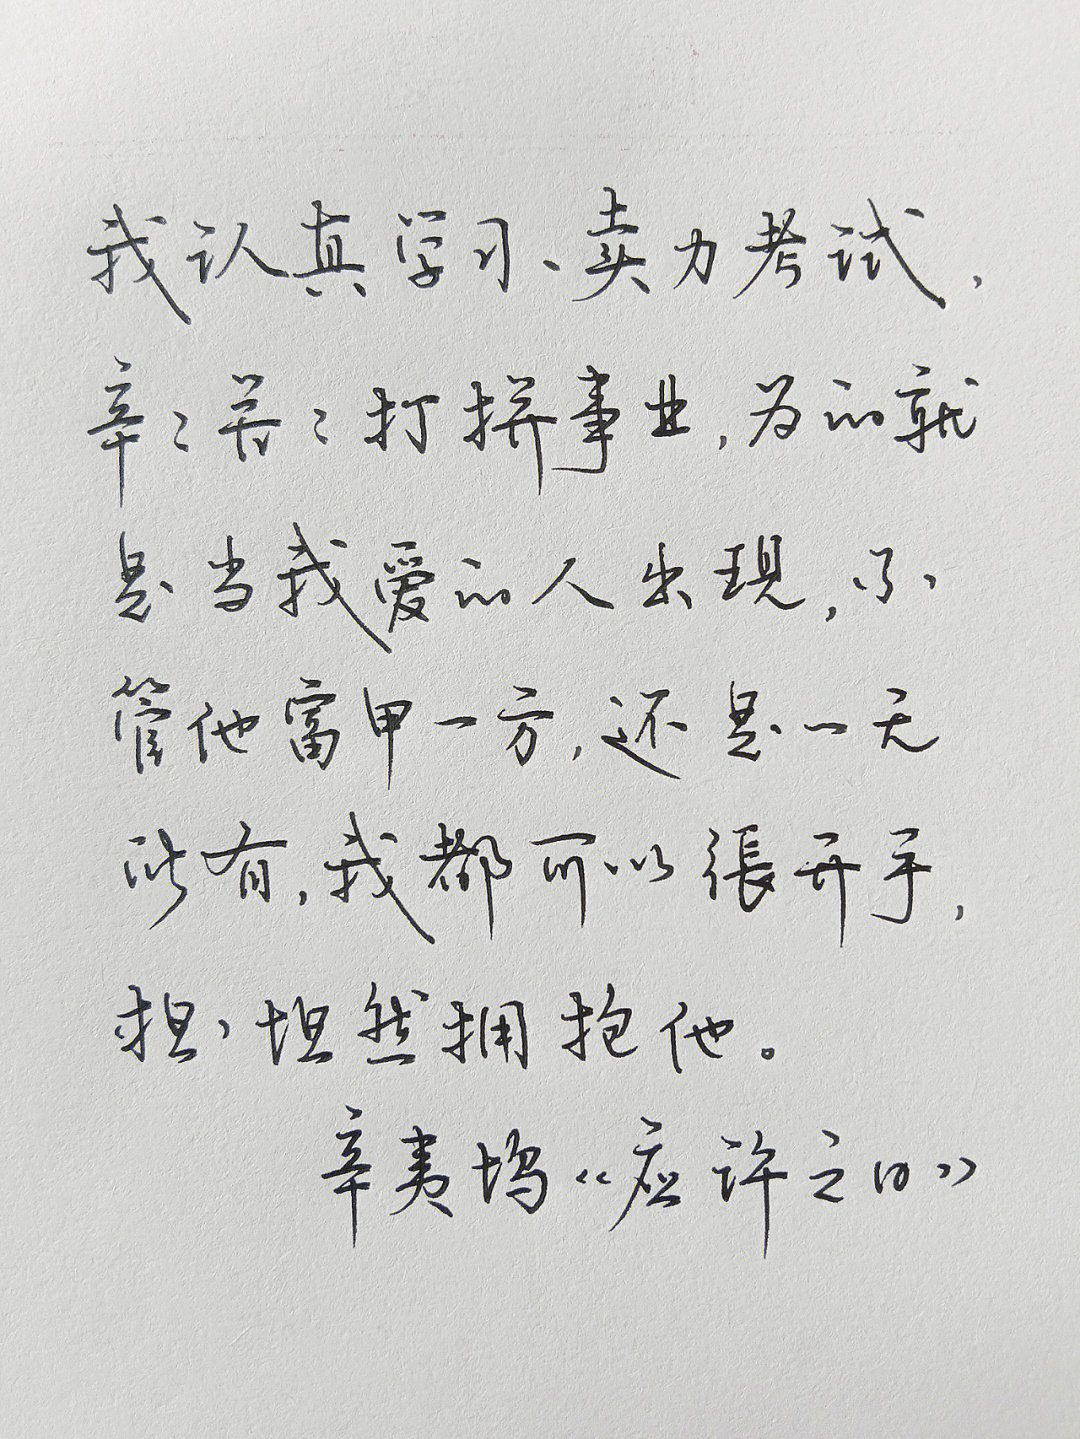 我认真学习、卖力考试,
辛辛苦苦打拼事业,为的就
是当我爱的人出现,不
管他富甲一方,还是一无
所有,我都可以張开手,
坦坦然拥抱他。
辛夷坞《应许之日》